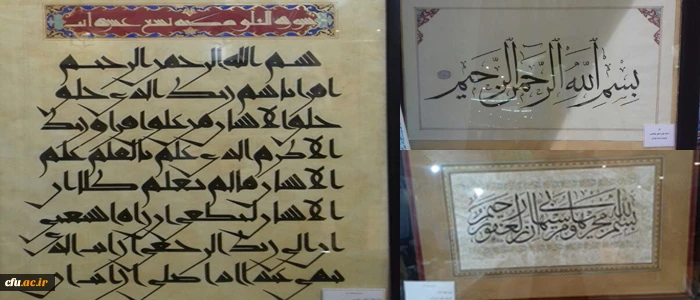 بسم الله الرحمن الرحيم
اقرا باسم ربك الذي خلق
خلق الانسان من علق اقرا وربك
الاكرم الذي علم بالقلم علم
الانسان ما لم يعلم كلا ان
الانسان ليطغى ان راه استغنى
ان الى ربك الرجعى ارايت الذي
ينهى عبدا اذا صلى ارايت ان
بِسْمِ اللَّهِ الرَّحْمَنِ الرَّحِيمِ
بسم الله مجريها ومرسيها ان ربي لغفور رحيم
cfu.ac.ir